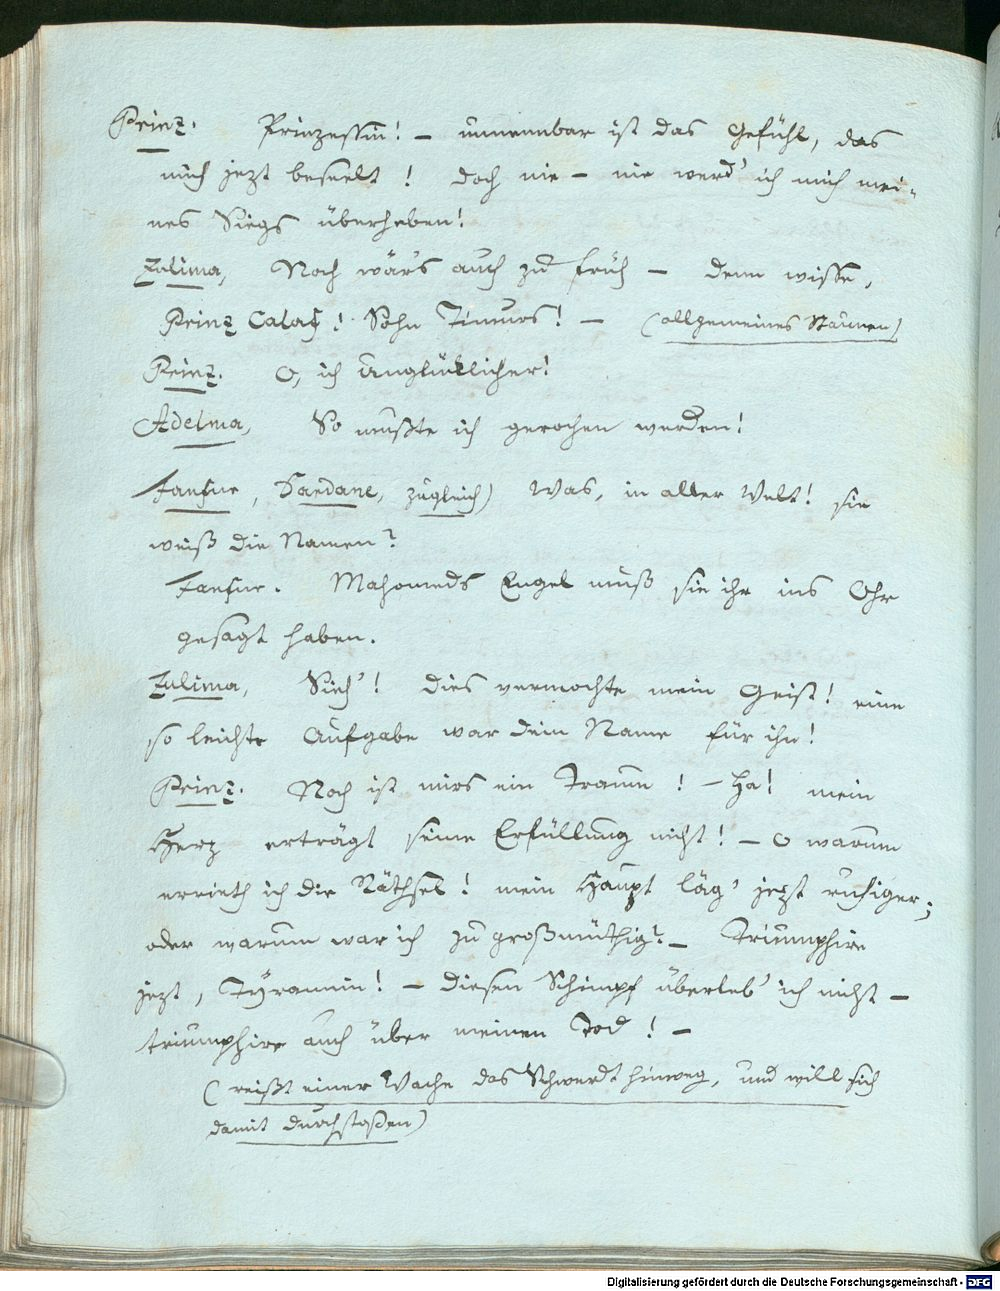 Prinz. Prinzessin! – unnennbar ist das Gefühl, das
mich jezt beseelt! doch nie – nie werd' ich mich mei-
nes Siegs überheben!
Zulima, Noch wär's auch zu früh – denn wisse,
Prinz Calaf! Sohn Timurs! – (allgemeines Staunen)
Prinz. O, ich Unglüklicher!
Adelma, So mußte ich gerochen werden!
Tanfur, Dardane, zugleich) Was, in aller Welt! sie
weiß die Namen?
Tanfur. Mahomeds Engel muß sie ihr ins Ohr
gesagt haben.
Zulima, Sieh'! dies vermochte mein Geist! eine
so leichte Aufgabe war dein Name für ihn!
Prinz. Noch ist mirs ein Traum! – Ha! mein
Herz erträgt seine Erfüllung nicht! – O warum
errieth ich die Räthsel! mein Haupt läg' jezt ruhiger;
oder warum war ich zu großmüthig? – Triumphire
jezt, Tÿrannin! – diesen Schimpf überleb' ich nicht –
triumphire auch über meinen Tod! –
(reißt einer Wache das Schwerdt hinweg, und will sich
damit durchstoßen)
Digitalisierung gefördert durch die Deutsche Forschungsgemeinschaft - DFG